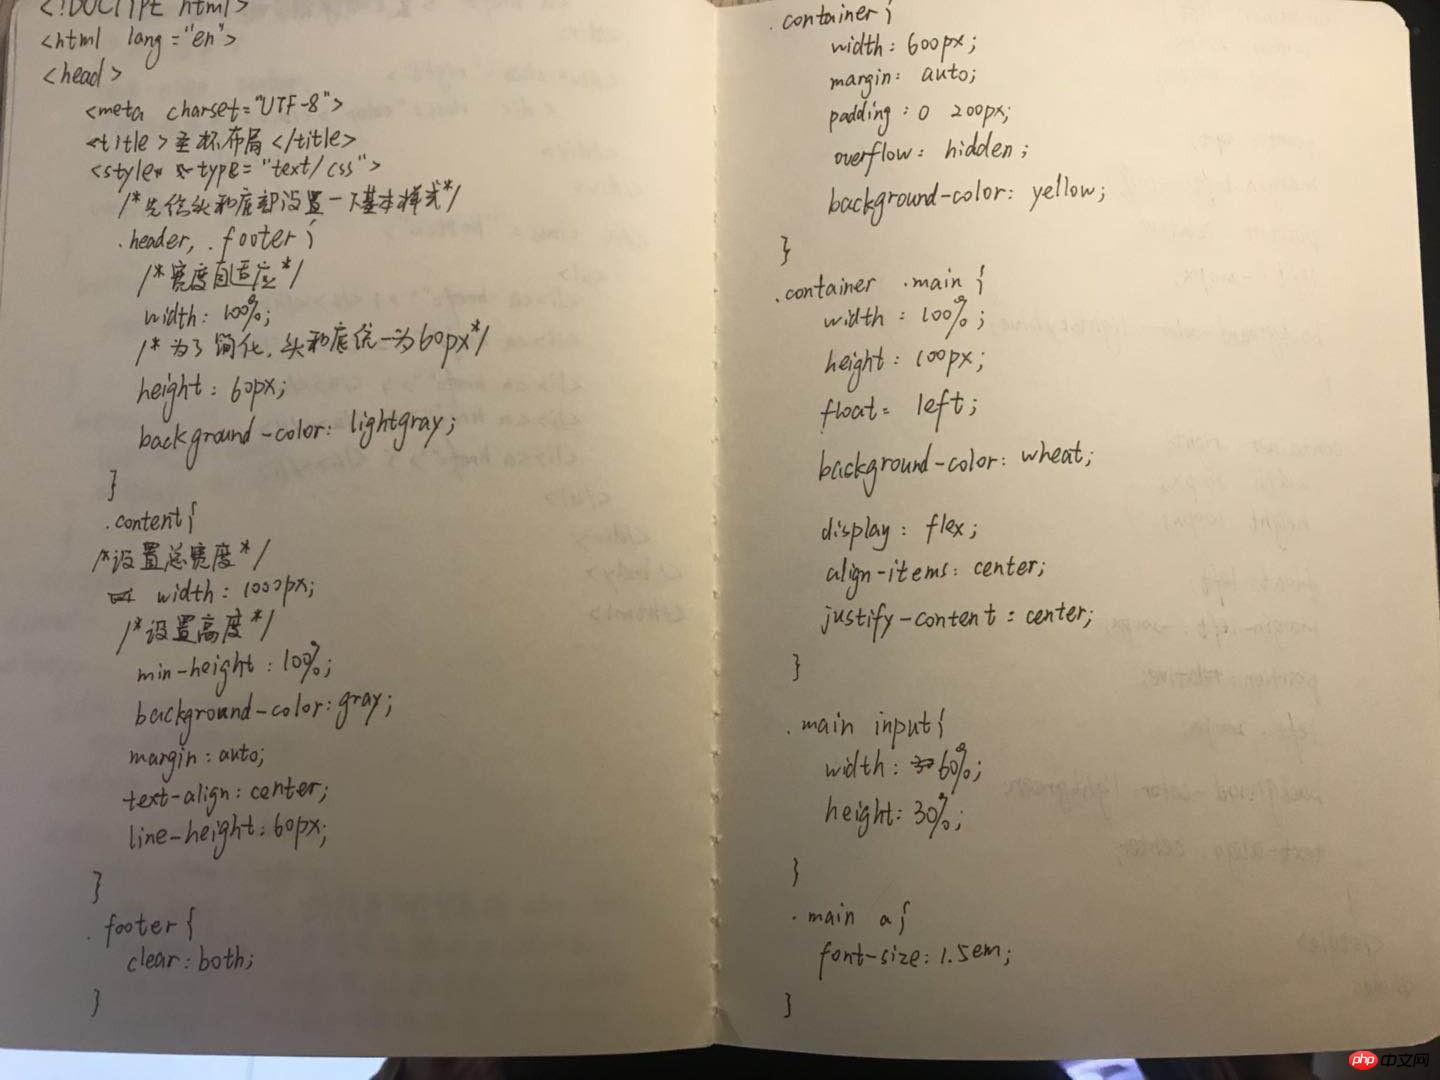 <!DOCTYPE html>
<html lang="en">
<head>
<meta charset="UTF-8">
<title>圣杯布局</title>
<style type="text/css">
/*先给头和底部设置一下基本样式*/
.header, .footer{
/*宽度自适应*/
width: 100%;
/*为了简化,头和底统一为60px*/
height: 60px;
background-color: lightgray;
}
.content{
/*设置总宽度*/
width: 1000px;
/*设置高度*/
min-height: 100%;
background-color: gray;
margin: auto;
text-align: center;
line-height: 60px;
}
.footer{
clear: both;
}
.container{
width: 600px;
margin: auto;
padding: 0 200px;
overflow: hidden;
background-color: yellow;
}
.container .main{
width: 100%;
height: 100px;
float: left;
background-color: wheat;
display: flex;
align-items: center;
justify-content: center;
}
.main input{
width: 60%;
height: 30%;
}
.main a{
font-size: 1.5em;
}
php 中文网